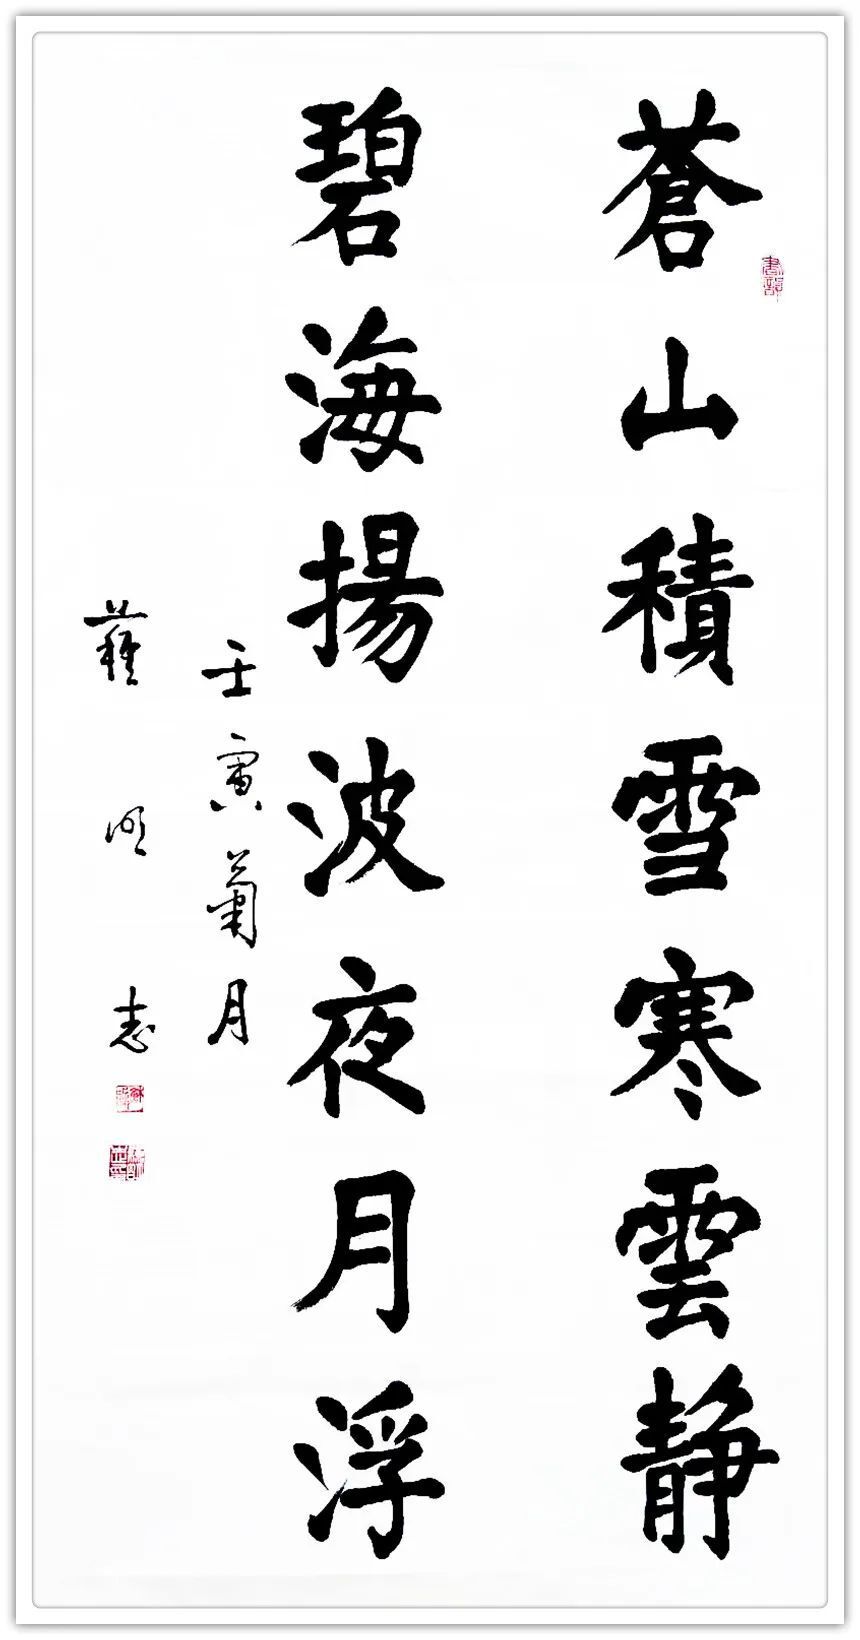 蒼山積雪寒雲静
碧海揚波夜月浮
壬寅菊月
明志